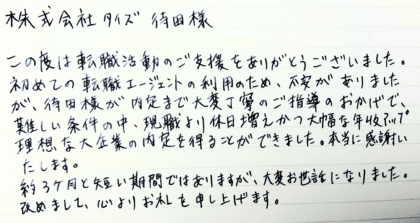 株式会社タイズ 待田様
この度は転職活動のご支援をありがとうございました。
初めての転職エージェントの利用のため、不安がありました
が、待田様が内定まで大変丁寧のご指導のおかげで、
難しい条件の中、現職より休日増えかつ大幅な年収アップ
理想な大企業の内定を得ることができました。本当に感謝い
たします。
約3ヶ月と短い期間ではありますが、大変お世話になりました。
改めまして、心よりお礼を申し上げます。